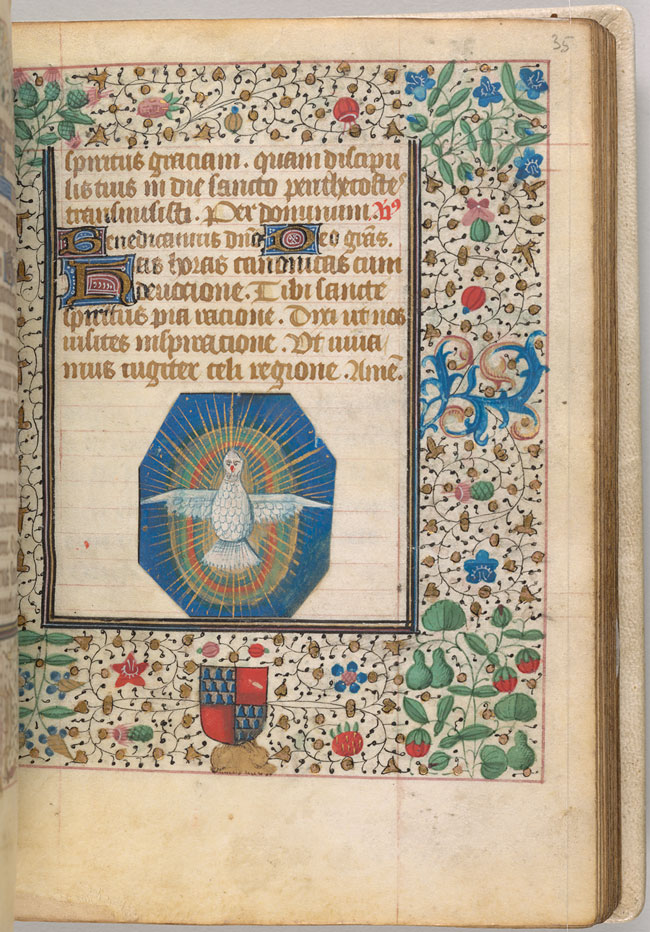 35
spiritus graciam. quam discipu
lis tuis in die sancto penthecostes
transmisisti. Per dominum. V9
Benedicamus dño Deo grãs.
Has horas canonicas cum
deuocione. Tibi sancte
spiritus pia racione. Dixi ut nos
uisites inspiracione. Vt uiua
mus iugiter celi regione. Amẽ.